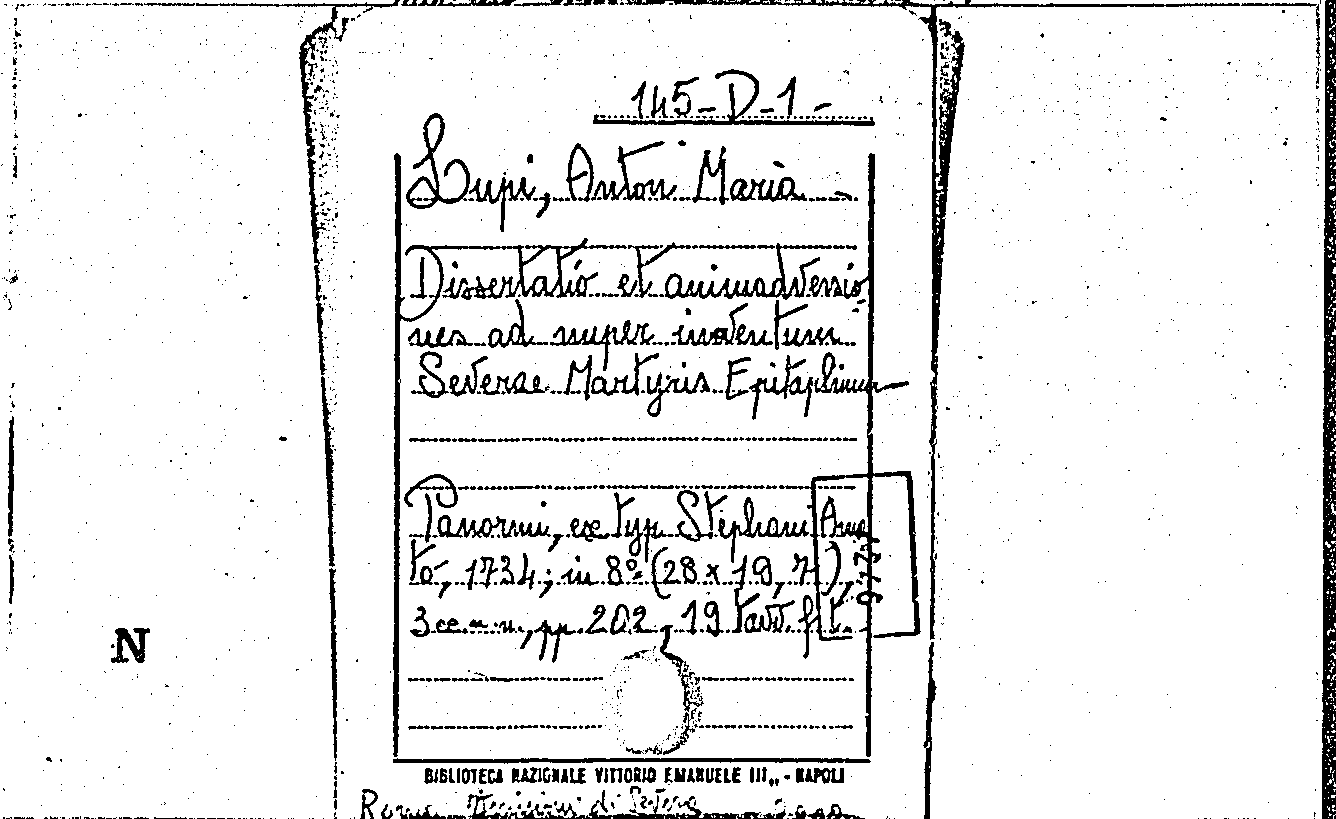 145-D-1-
Lupi, Anton Maria
Dissertatio et animadversio
nes ad nuper inventum
Severae Martyris Epitaphium
Panormi, ex typ Stephani Ama
to, 1734; in 8º (28 x 19,7),
3 cc. n. n., pp. 202, 19 tavv. f. t.
N
BIBLIOTECA NAZIONALE VITTORIO EMANUELE III,, - NAPOLI
Roma di Severa